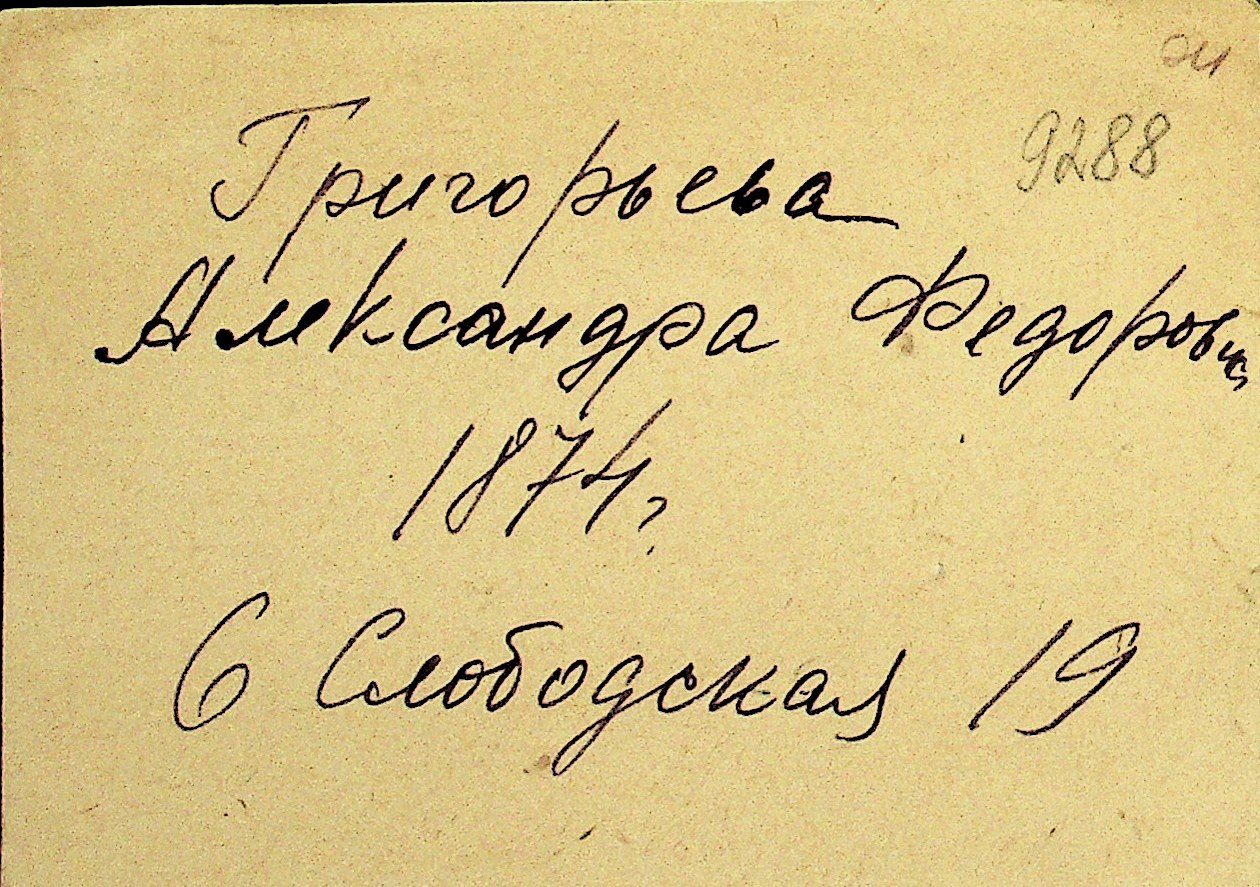 9288
Григорьева
Александра Федоровна
1874 г.
6 Слободская 19